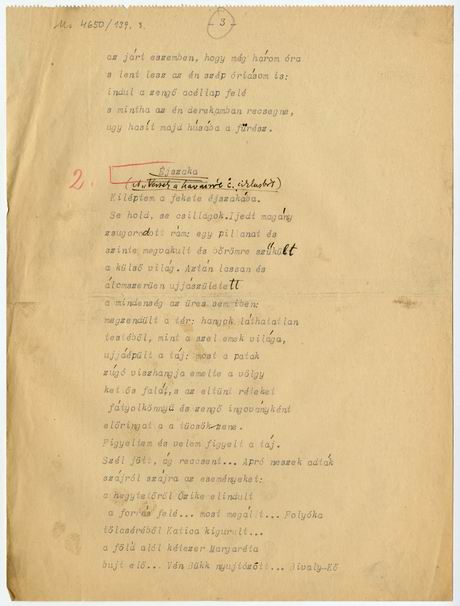 Ms 4650/139. 3.
- 3 -
az járt eszemben, hogy még három óra
s lent lesz az én szép órtásom is:
indul a zengő acéllap felé
s mintha az én derekamban recsegne,
ugy hasít majd húsába a fűrész.
2.
Éjszaka
(A Versek a havasról c. ciklusból)
Kiléptem a fekete éjszakába.
Se hold, se csillagok.Ijedt magány
zsugorodott rám: egy pillanat és
szinte megvakult és bőrömre szűkült
a külső világ. Aztán lassan és
álomszerüen ujjászületett
a mindenség az üres semmiben:
megzendült a tér: hangok láthatatlan
testéből, mint a szellemek világa,
ujjáépült a táj: most a patak
zúgó viszhangja emelte a völgy
kettős falát,s az eltünt réteket
fátyolkönnyű és zengő ingoványként
előringatta a tücsök-zene.
Figyeltem és velem figyelt a táj.
Szél jött, ág reccsent... Apró neszek adták
szájról szájra az eseményeket:
a hegytetőről Őzike elindult
a forrás felé... most megállt... Folyóka
tölcséréből Katica kigurult...
a fölü alól kétezer Margaréta
bujt elő... Vén Bükk nyujtózott... Bivaly-Kő